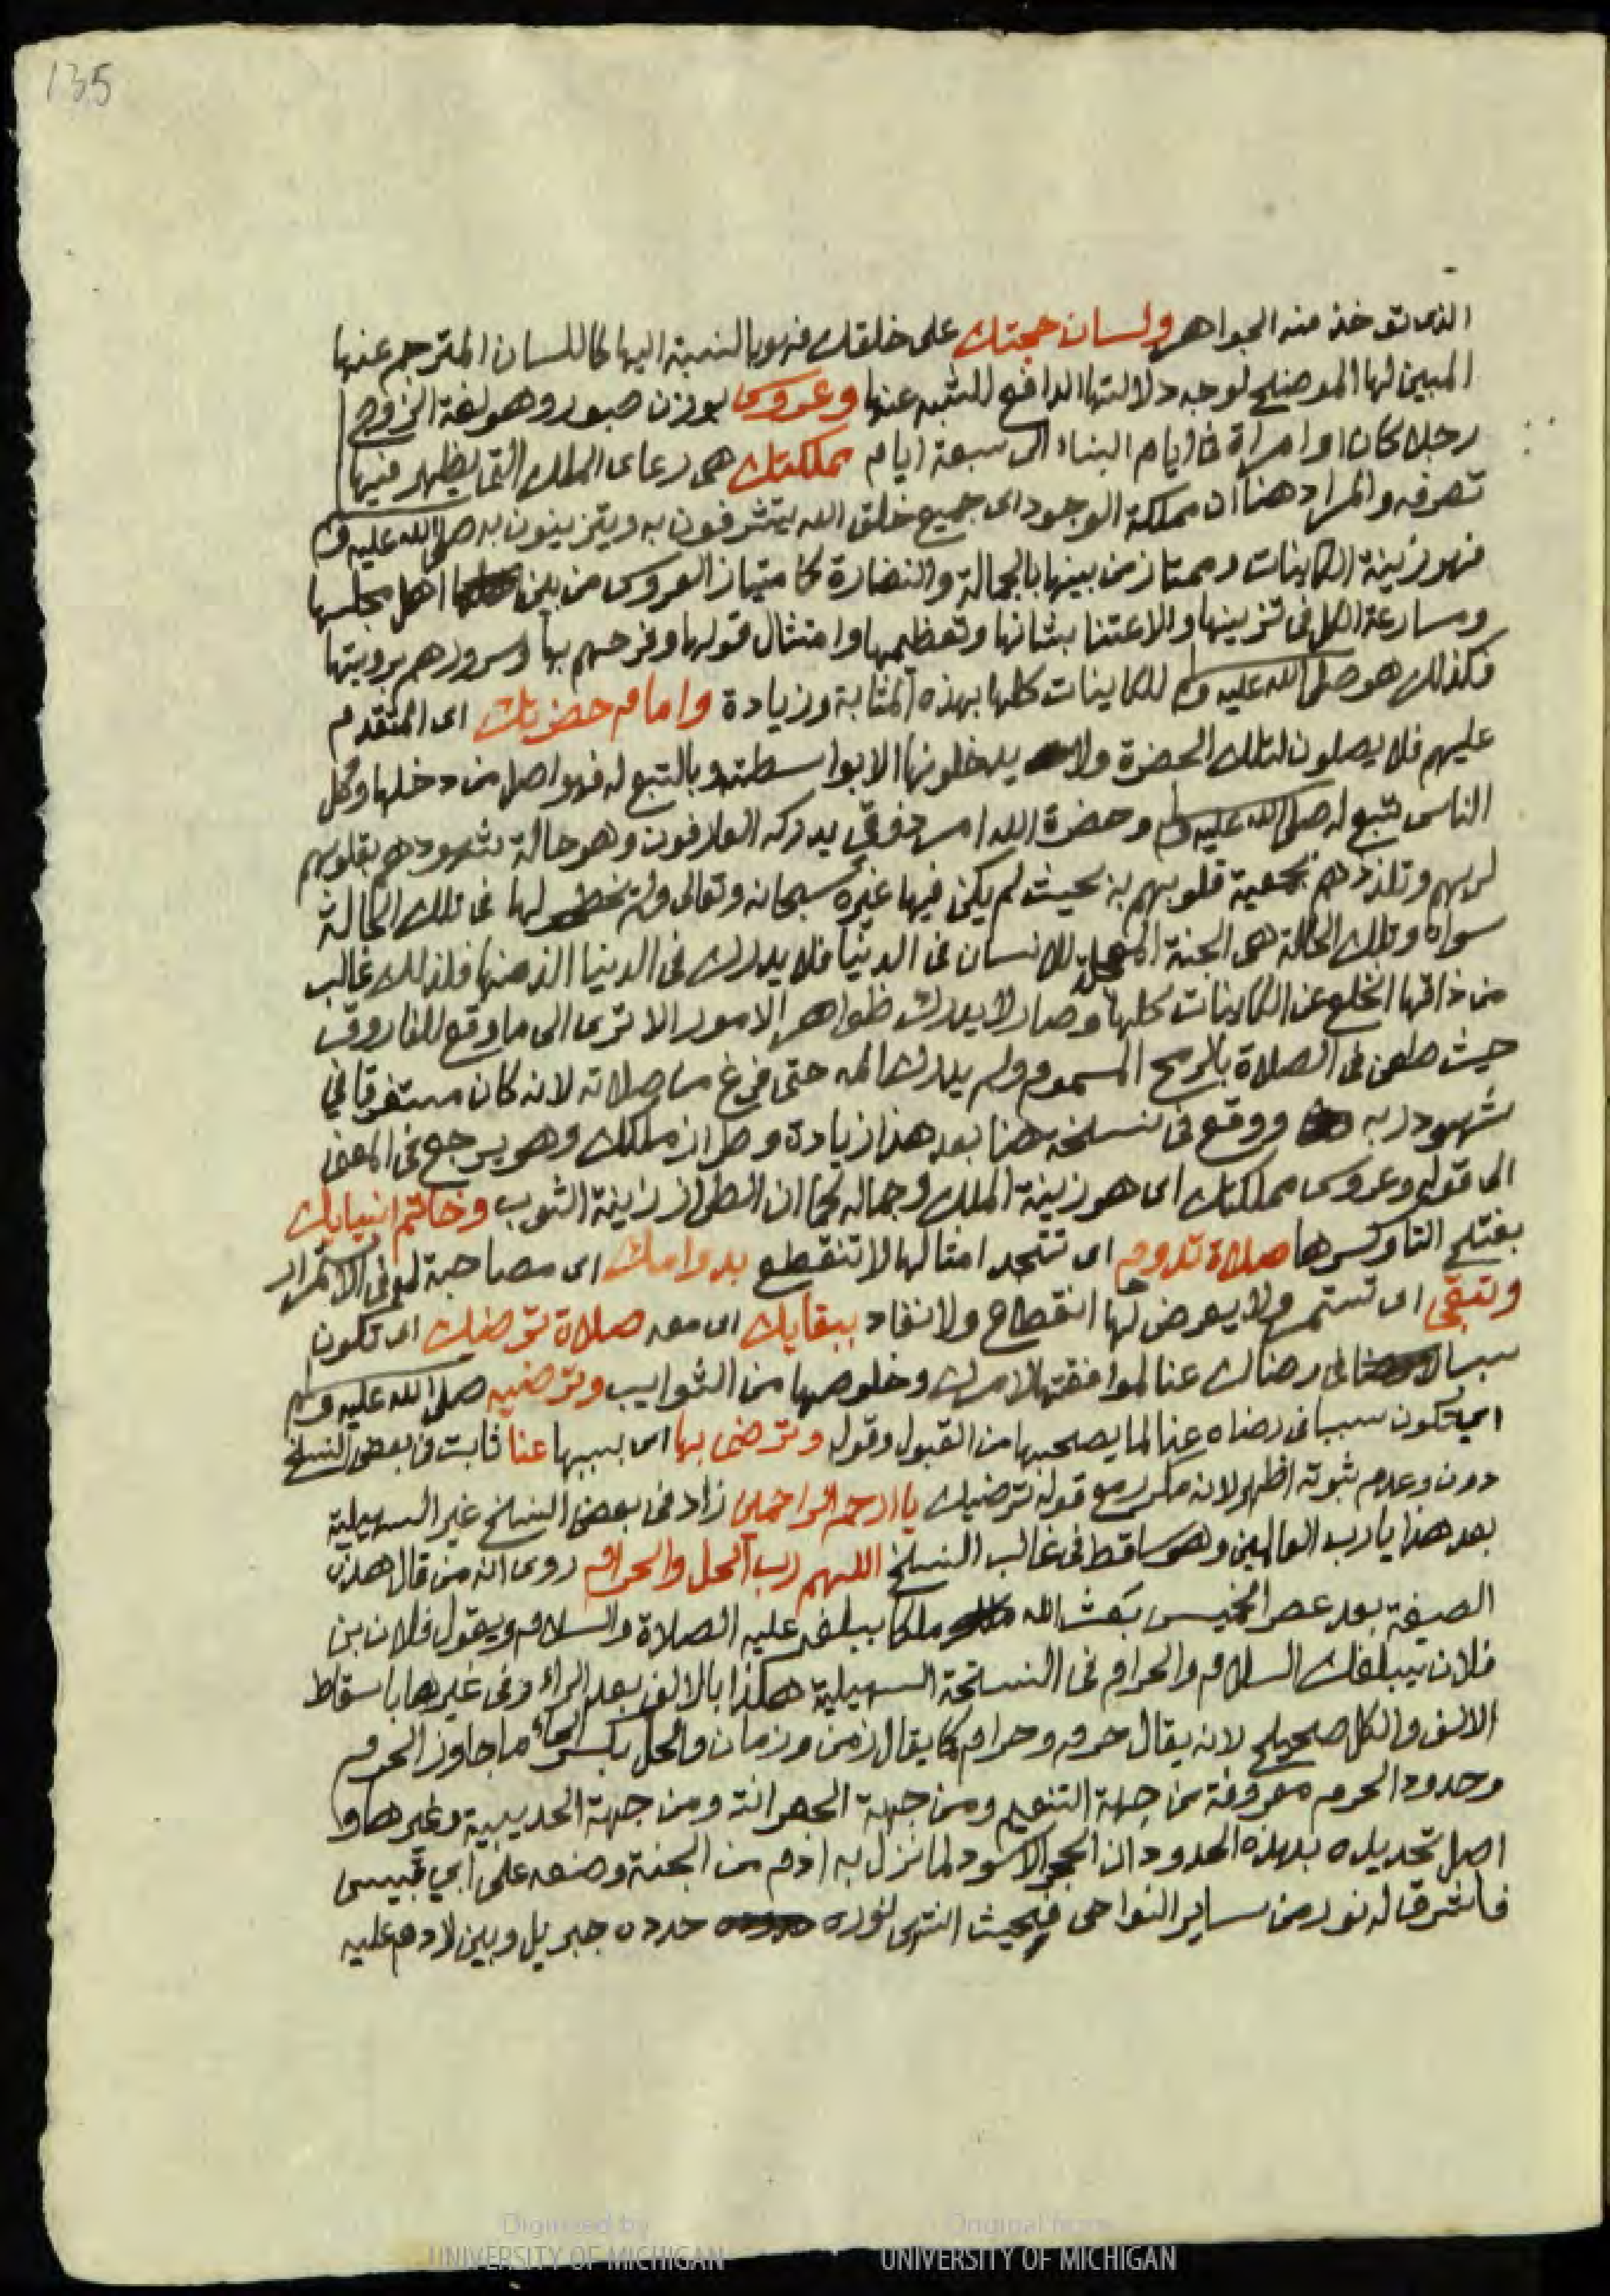 135
الذى توخذ منه الجواهر ولسان حجتك على خلقك فهو بالنسبة اليها كاللسان المترجم عنها
المبين لها الموضح لوجه دلالتها الدافع للشبه عنها وعروس بوزن صبور وهو لغة الزوج
رجلا كان او امراة فى ايام البناء الى سبعة ايام مملكتك هى رعاى الملك التى يظهر فيها
تصرفه والمراد هنا ان مملكة الوجود اى جميع خلق الله يتشرفون به ويتزينون به صلى الله عليه وسلم
فهو زينة الكاينات وممتاز من بينها بالجمالة والنضارة كامتياز العروس من بين اهل مجلسها
ومسارعة الكل فى تزيينها والاعتنا بشانها وتعظيمها وامتثال قولها وفرحهم بها وسرورهم برويتها
فكذلك هو صلى الله عليه وسلم للكاينات كلها بهذه المثابة وزيادة وامام حضرتك اى المتقدم
عليهم فلا يصلون لتلك الحضرة ولا يدخلونها الا بواسطته وبالتبع له فهو اصل من دخلها وكل
الناس تتبع له صلى الله عليه وسلم وحضرة الله امر ذوقى يدركه العارفون وهو حالة شهودهم بقلوبهم
لربهم وتلذذهم بجمعية قلوبهم به بحيث لم يكن فيها غيره سبحانه وتعالى ولم يخطر لها فى تلك الحالة
سواه وتلك الحالة هى الجنة المعجلة للانسان فى الدنيا فلا يدرك فى الدنيا الذ منها فلذلك غالب
من ذاقها انخلع عن الكاينات كلها وصار لا يدرك ظواهر الامور الا ترى الى ما وقع للفاروق
حيث طعن فى الصلاة بالرمح المسموم ولم يدرك المه حتى فرغ من صلاته لانه كان مستغرقا في
شهود ربه ووقع فى نسخه هنا بعد هذا زيادة وطراز ملكك وهو يرجع فى المعنى
الى قوله وعروس مملكتك اى هو زينة الملك وجماله كما ان الطراز زينة الثوب وخاتم انبيايك
بفتح التا وكسرها صلاة تدوم اى تتجد امثالها لا تنقطع بدوامك اى مصاحبة له فى الاستمرار
وتبقى اى تستمر ولا يعرض لها انقطاع ولا نفاد ببقايك اى معه صلاة ترضيك اى تكون
سببا فى رضاك عنا لموافقتها لامرك وخلوصها من الشوايب وترضيه صلى الله عليه وسلم
اى تكون سببا فى رضاه عنا لما يصحبها من القبول وقوله وترضى بها اى بسببها عنا ثابت فى بعض النسخ
دون وعدم ثبوته اظهر لانه مكرر مع قوله ترضيك يا ارحم الراحمين زاد فى بعض النسخ غير السهيلية
بعد هذا يا رب العالمين وهو ساقط فى غالب النسخ اللهم رب الحل والحرام روى انه من قال هذه
الصيغة بعد عصر الخميس بعث الله ملكا يبلغه عليه الصلاة والسلام ويقول فلان بن
فلان يبلغك السلام والحرام فى النسخة السهيلية هكذا بالالف بعد الراء وفى غيرها باسقاط
الالف والكل صحيح لانه يقال حرم وحرام كما يقال زمن وزمان والحل بكسر الحاء ما جاوز الحرم
وحدود الحرم معروفة من جهة التنعيم ومن جهة الجعرانة ومن جهة الحديبية وغيرها و
اصل تحديده بهذه الحدود ان الحجر الاسود لما نزل به ادم من الجنة وضعه على ابي قبيس
فاشرق له نور من ساير النواحى فحيث انتهى نوره حدده جبريل وبين لادم عليه
Digitized by
UNIVERSITY OF MICHIGAN
Original from
UNIVERSITY OF MICHIGAN